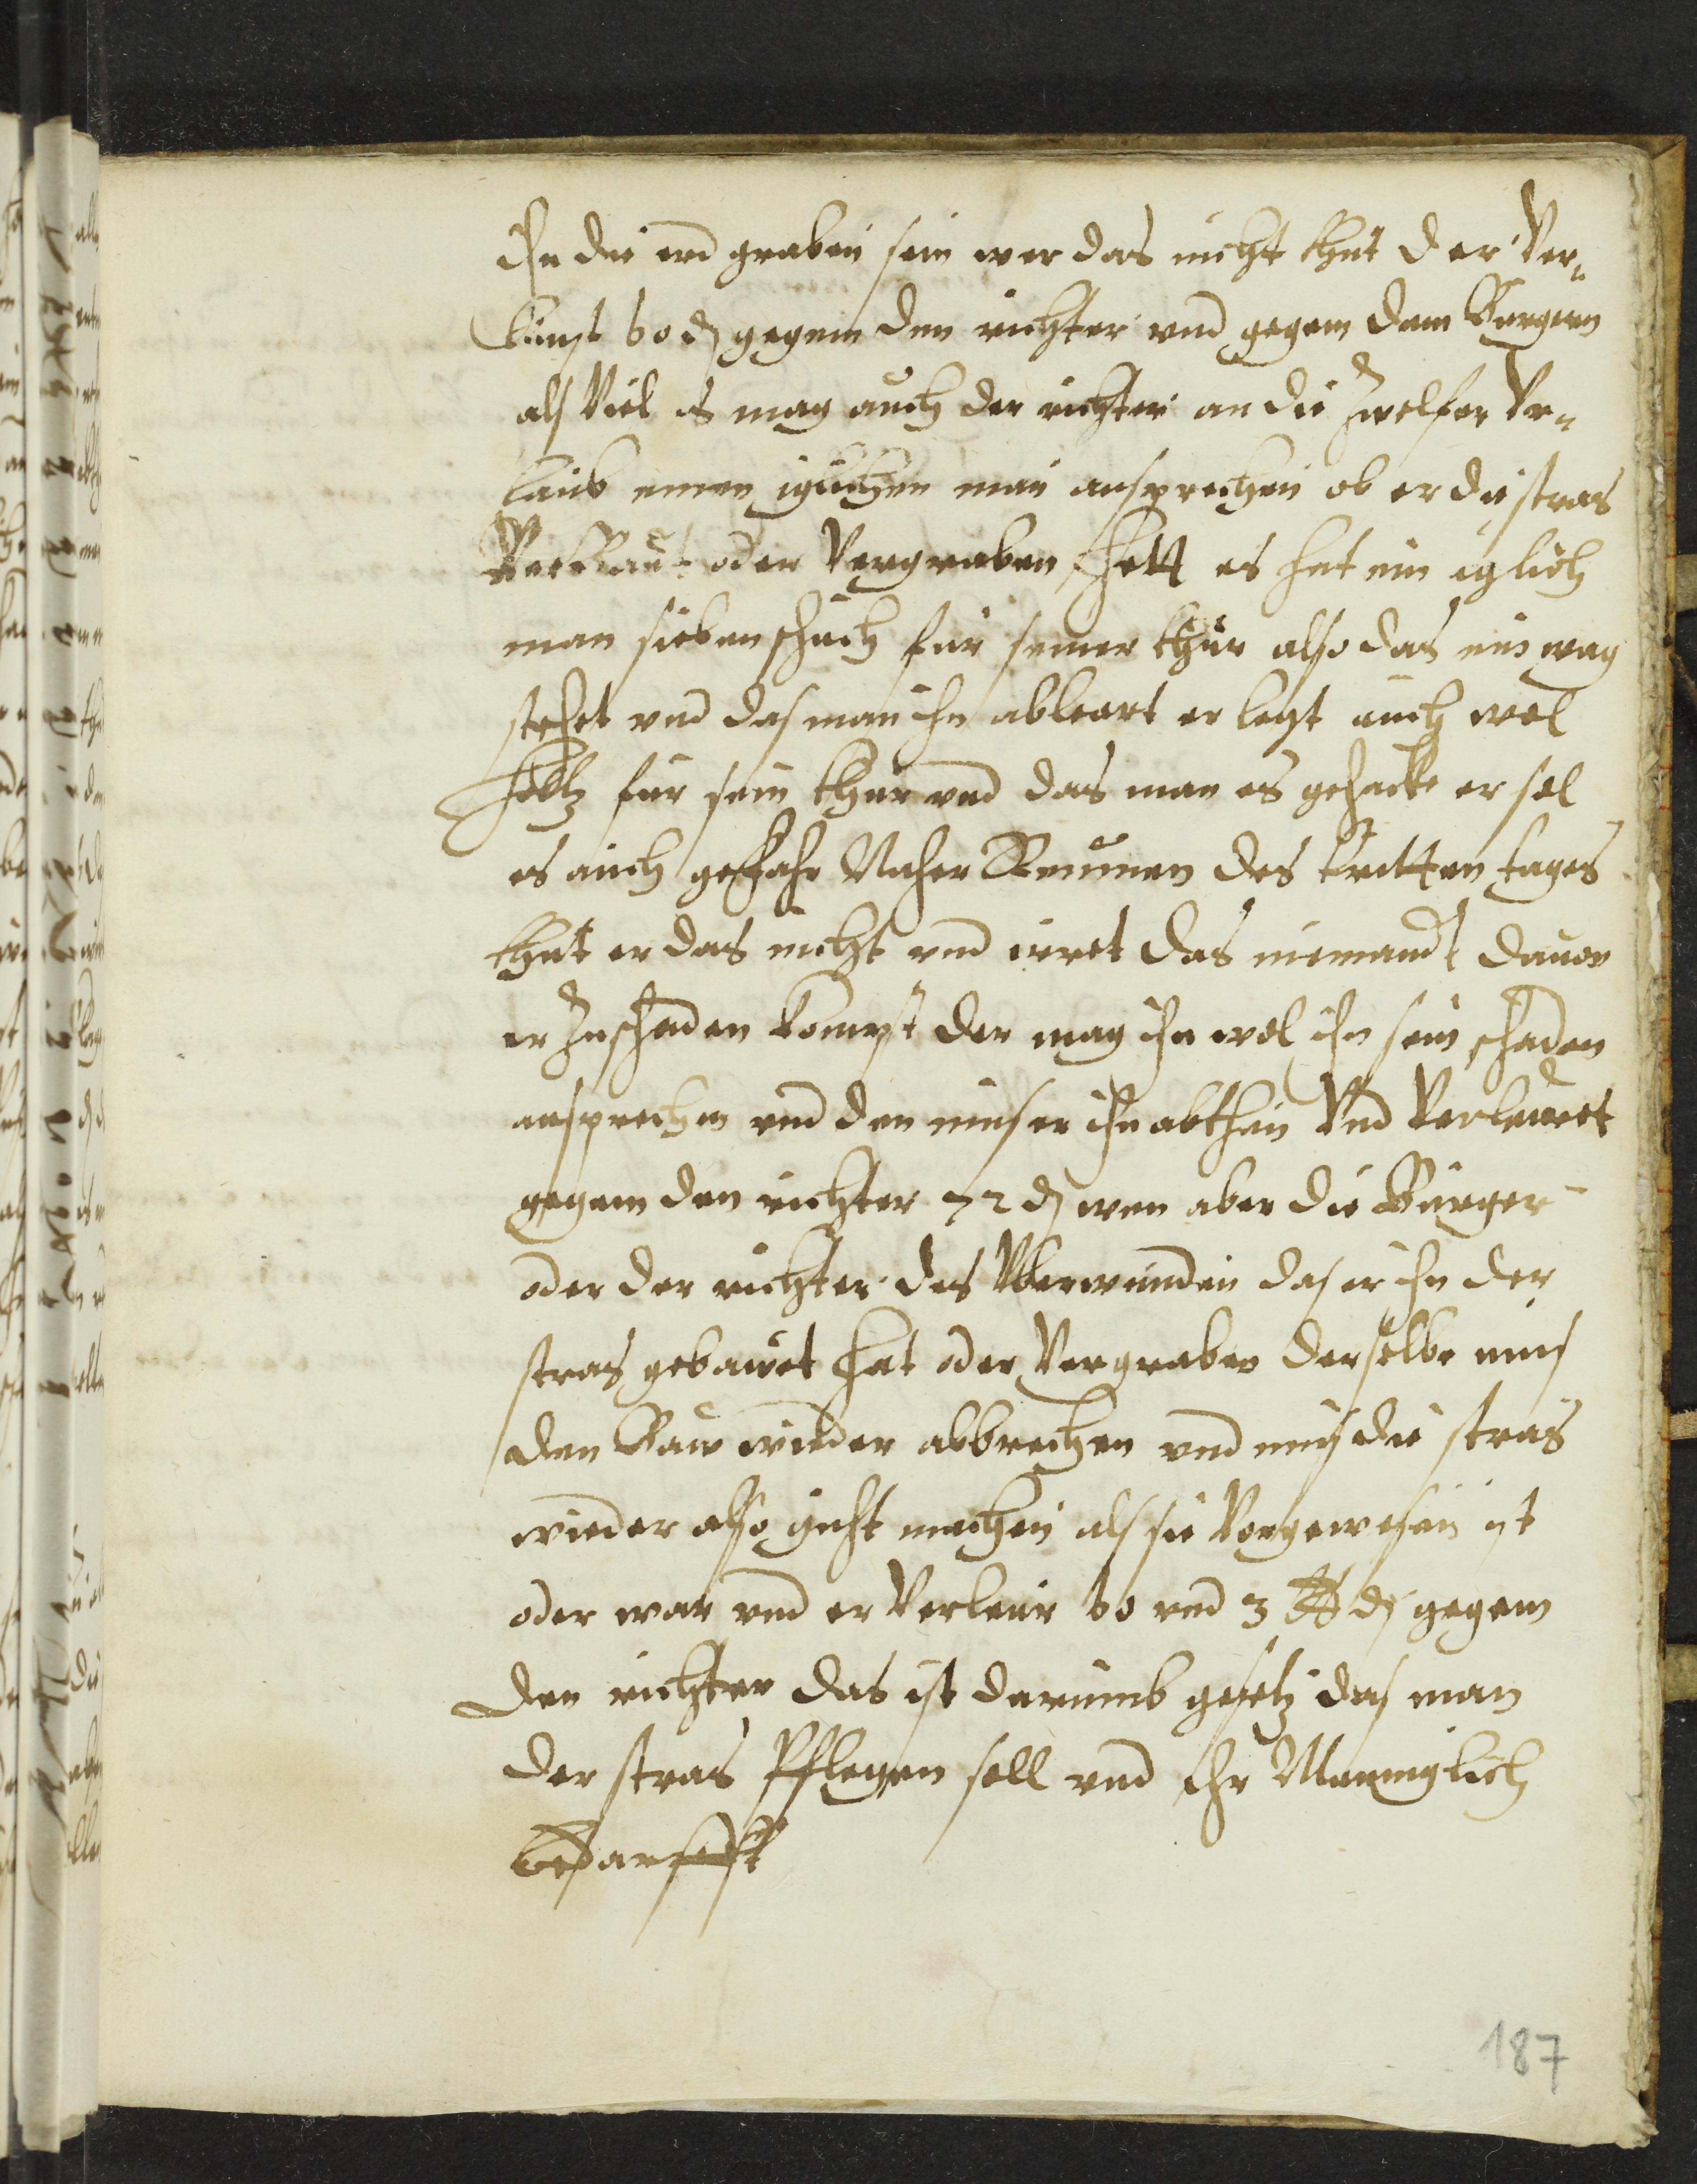 ihn die erd graben sein wer das nicht thut der Ver¬
leust 60 ₰ gegenn den richter vnd gegenn dem Burgern
als Viel es mag auch der richter an die Zwelfer Vr¬
laub einen iglichen man ansprechen ob er die stras
Verbaut oder Vergraben hett es hat ein iglich
man sieben schuch fur seiner thur also das ein wag
stehet vnd das man ihn ableert er legt auch wol
holtz fur sein thur vnd das man es gehacke er sol
es auch gefahr Nacher Reumen des tritten tages
thut er das nicht vnd irret das niemandt dauon
er zuschaden kompt der mag ihn wol ihn sein schaden
ansprechen vnd den mus er ihn abthun Vnd Verleuret
gegenn den richter 72 ₰ wen aber die Burger
oder der richter des Vberwunden das er ihn der
stras gebawet hat oder Vergraben derselbe mus
den Baw wieder abbrechen vnd mus die stras
wieder also guht machen als sie Vorgewesen ist
oder war vnd er Verleur 60 vnd 3 ℔ ₰ gegenn
den richter das ist darumb gesetz das man
der stras Pflegen soll vnd ihr Menniglich
bedarff
187